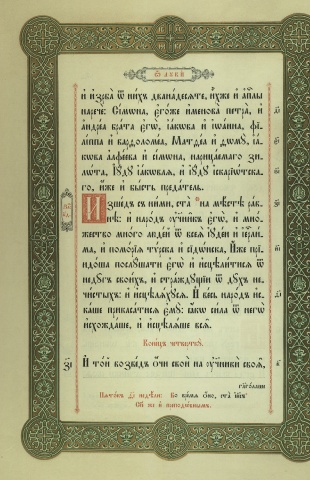 Ѿ ЛꙊКИ
и҆ и҆збра̀ ѿ ни́хъ двана́десѧте, и҆̀хже и҆ а҆пⷭ҇лы
нарече́: Сі́мѡна, є҆го́же и҆менова̀ петра̀, и҆
а҆ндре́а бра́та є҆гѡ̀, і҆а́кѡва и҆ і҆ѡа́нна, фі-
лі́ппа и҆ варѳоломе́а, Матѳе́а и҆ ѳѡмꙋ̀, і҆а́-
кѡва а҆лфе́ева и҆ сі́мѡна, нарица́емаго зи-
лѡ́та, І҆ꙋ́дꙋ і҆а́кѡвлѧ, и҆ і҆ꙋ́дꙋ і҆скарїѡ́тска-
го, и҆́же и҆ бы́сть преда́тель.
И҆ зше́дъ съ ни́ми, ста̀ на мѣ́стѣ ра́в-
нѣ: и҆ наро́дъ ᲂу҆чн҃къ є҆гѡ̀, и҆ мно́-
жество мно́го люде́й ѿ всеѧ̀ і҆ꙋде́и и҆ і҆ерⷭ҇ли́-
ма, и҆ помо́рїѧ тѵ́рска и҆ сїдѡ́нска, И҆̀же прї-
идо́ша послꙋ́шати є҆гѡ̀ и҆ и҆сцѣли́тисѧ ѿ
недꙋ̑гъ свои́хъ, и҆ стра́ждꙋщїи ѿ дꙋ̑хъ не-
чи́стыхъ: и҆ и҆сцѣлѧ́хꙋсѧ. И҆ ве́сь наро́дъ и҆с-
ка́ше прикаса́тисѧ є҆мꙋ̀: ꙗ҆́кѡ си́ла ѿ негѡ̀
и҆схожда́ше, и҆ и҆сцѣлѧ́ше всѧ̑.
Коне́цъ четверткꙋ̀.
И҆ то́й возве́дъ ѻ҆́чи своѝ на ᲂу҆чн҃кѝ своѧ̑,
гл҃го́лаше
Пѧто́къ д҃і недѣ́ли: Во вре́мѧ ѻ҆́но, ста̀ і҆и҃съ
Сїѐ же и҆ преподо́бнымъ.